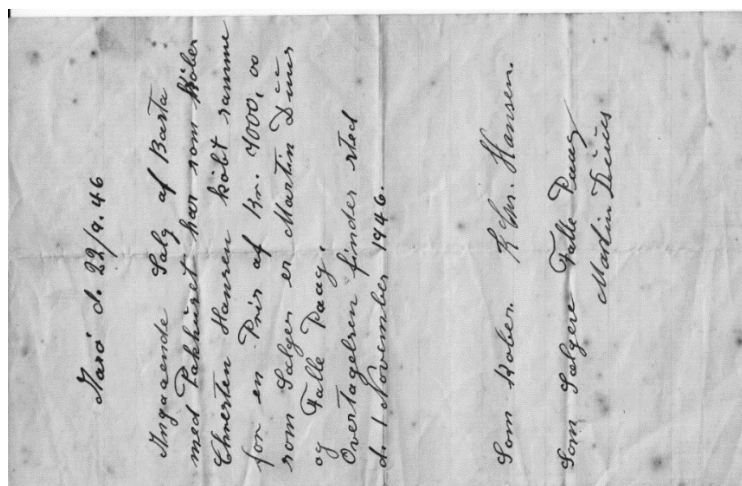 Aarö d. 22/9.46
Ingaaende Salg af Basta
med Pakhuset har som Köber
Chresten Hansen köbt samme
for en Pris af Kr. 4000,00
som Sælger er Martin Duus
og Falle Paag.
Overtagelsen finder sted
d. 1 November 1946.
Som Köber. K Chr. Hansen.
Som Sælgere Falle Paag
Martin Duus